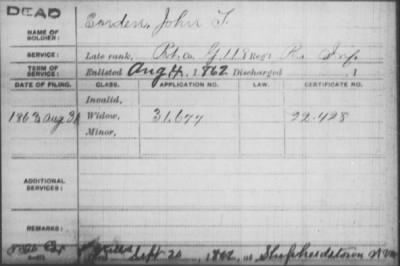 DEAD
NAME OF SOLDIER: Carden, John T.
SERVICE: Late rank, Pvt. Co. G, 118 Reg't Pa. Inf.
TERM OF SERVICE: Enlisted Aug 4, 1862 Discharged , 1
DATE OF FILING. CLASS. APPLICATION NO. LAW. CERTIFICATE NO.
Invalid,
1863 Aug 31 Widow, 31,677 22.428
Minor,
ADDITIONAL SERVICES:
REMARKS:
killed Sept 20, 1862, at Shepherdstown W Va